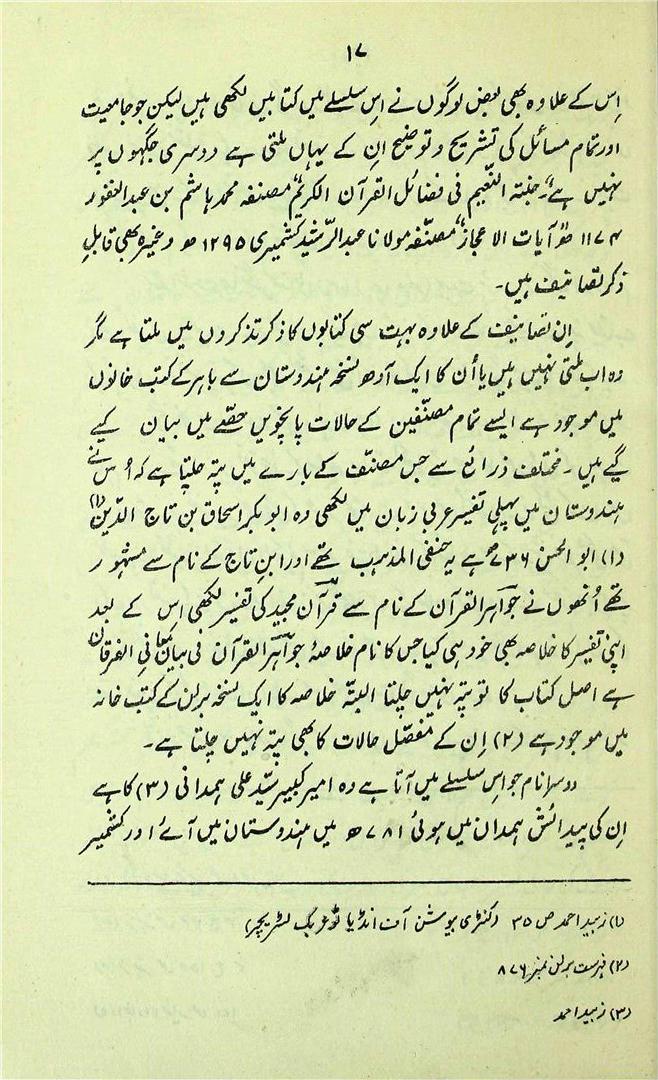 ۱۷
اِس کے علاوہ بھی بعض لوگوں نے اِس سلسلے میں کتابیں لکھی ہیں لیکن جو جامعیت
اور تمام مسائل کی تشریح و توضیح اِن کے یہاں ملتی ہے دوسری جگہوں پر
نہیں ہے۔ "جنتہ النّعیم فی فضائل القرآن الکریم" مصنفہ محمد ہاشم بن عبد الغفور
۱۱۷۴ ھ "آیات الاعجاز" مصنّفہ مولانا عبد الرّشید کشمیری ۱۲۹۵ ھ وغیرہ بھی قابلِ
ذکر تصانیف ہیں۔
اِن تصانیف کے علاوہ بہت سی کتابوں کا ذکر تذکروں میں ملتا ہے مگر
وہ اب ملتی نہیں ہیں یا اُن کا ایک آدھ نسخہ ہندوستان سے باہر کے کتب خانوں
میں موجود ہے ایسے تمام مصنّفین کے حالات پانچویں حصّے میں بیان کیے
گیے ہیں۔ مختلف ذرائع سے جس مصنّف کے بارے میں پتہ چلتا ہے کہ اُس نے
ہندوستان میں پہلی تفسیر عربی زبان میں لکھی وہ ابو بکر اسحاق بن تاج الدّین (۱)
(۱) ابو الحسن ۷۳۶ھ ہے یہ حنفی المذہب تھے اور ابنِ تاج کے نام سے مشہور
تھے اُنھوں نے جواہر القرآن کے نام سے قرآن مجید کی تفسیر لکھی اِس کے بعد
اپنی تفسیر کا خلاصہ بھی خود ہی کیا جس کا نام خلاصۂ جواہر القرآن فی بیان معانی الفرقان
ہے اصل کتاب کا تو پتہ نہیں چلتا البتّہ خلاصہ کا ایک نسخہ برلن کے کتب خانہ
میں موجود ہے (۲) اِن کے مفصّل حالات کا بھی پتہ نہیں چلتا ہے۔
دوسرا نام جو اِس سلسلے میں آتا ہے وہ امیر کبیر سیّد علی ہمدانی (۳) کا ہے
اِن کی پیدائش ہمدان میں ہوئی ۷۸۱ ھ میں ہندوستان میں آئے اور کشمیر
(۱) زبید احمد ص ۳۵ (کنٹری بیوشن آف انڈیا ٹو عربک لٹریچر)
(۲) فہرست برلن نمبر ۸۷۶
(۳) زبید احمد